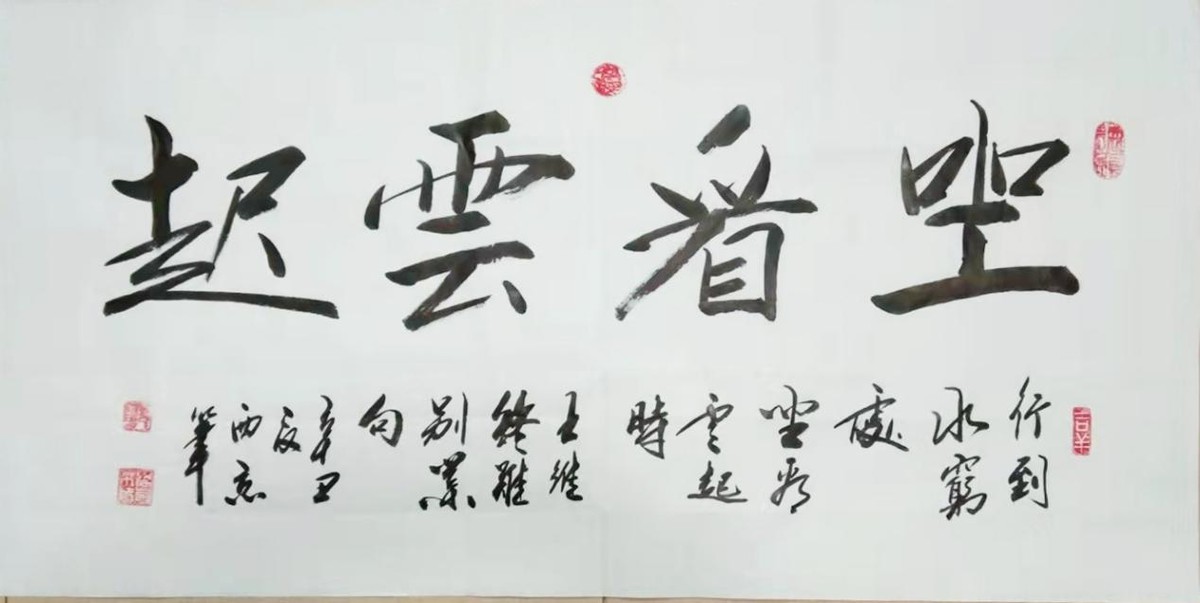 坐看雲起
行到
水窮
處
坐看
云起
時
王維
終
别業
句
辛丑
西
筆